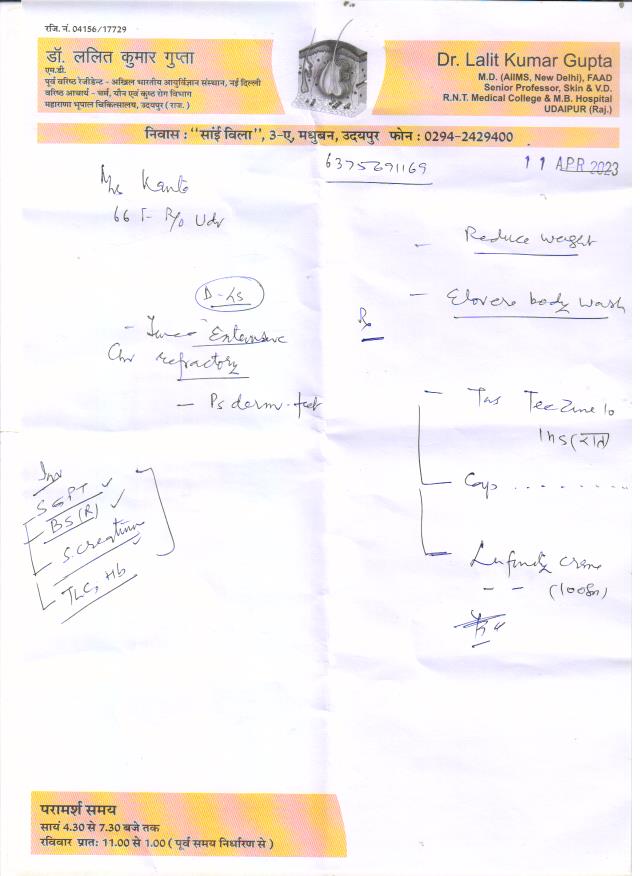 रजि. नं. 04156/17729
डॉ. ललित कुमार गुप्ता
एम.डी.
पूर्व वरिष्ठ रेजीडेन्ट - अखिल भारतीय आयुर्विज्ञान संस्थान, नई दिल्ली
वरिष्ठ आचार्य - चर्म, यौन एवं कुष्ठ रोग विभाग
महाराणा भूपाल चिकित्सालय, उदयपुर ( राज. )
Dr. Lalit Kumar Gupta
M.D. (AIIMS, New Delhi), FAAD
Senior Professor, Skin & V.D.
R.N.T. Medical College & M.B. Hospital
UDAIPUR (Raj.)
निवास : "सांई विला", 3-ए, मधुबन, उदयपुर फोन : 0294-2429400
6375691169
11 APR 2023
Kanta
66 F R/o Udr
D-45
Extensive
refractory
- Ps derm - feet
Inv
SGPT ✓
BS(R) ✓
S. creatinine
TLC, Hb
- Reduce weight
- Elovera body wash
Rx
- Tab Teczine 10
1 hs (रात)
- Cap ........
- cream
- - (100gm)
परामर्श समय
सायं 4.30 से 7.30 बजे तक
रविवार प्रात: 11.00 से 1.00 ( पूर्व समय निर्धारण से )